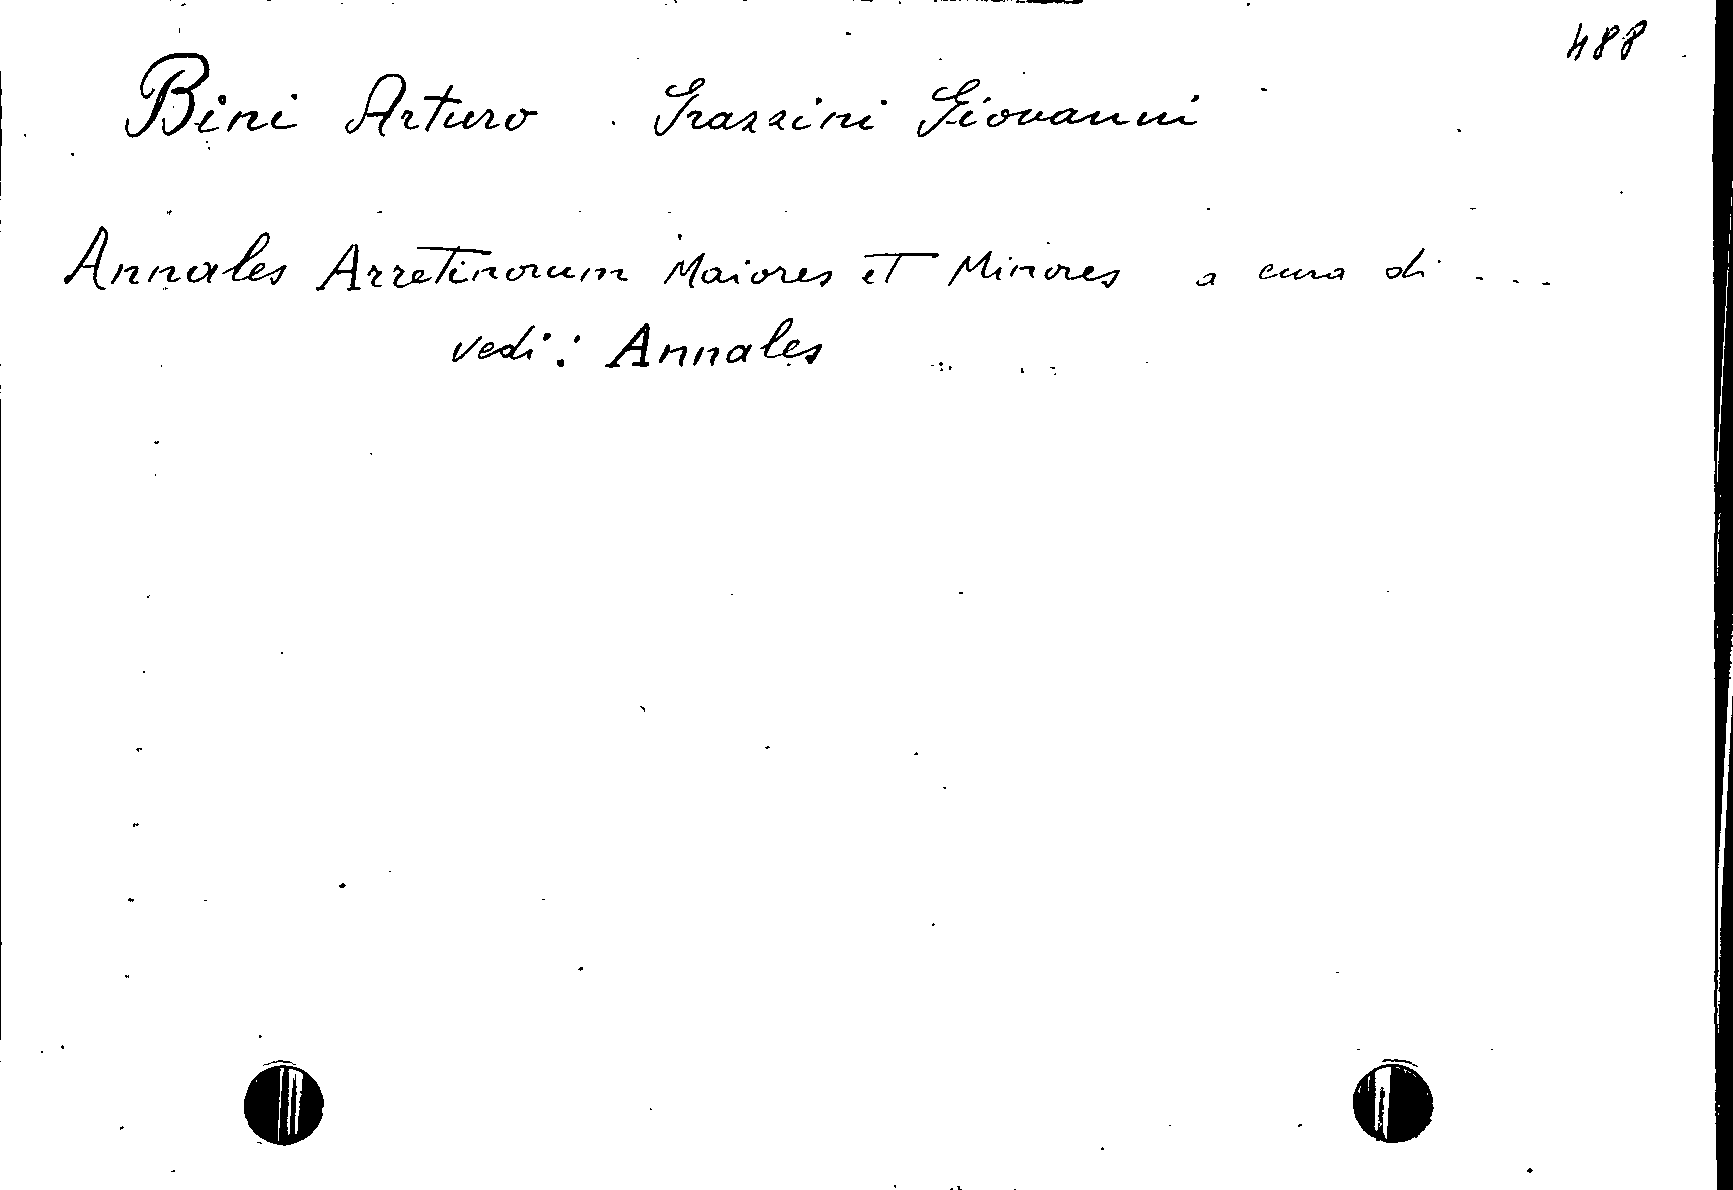 488
Bini Arturo Grazzini Giovanni
Annales Arretinorum Maiores et Minores a cura di ...
vedi: Annales